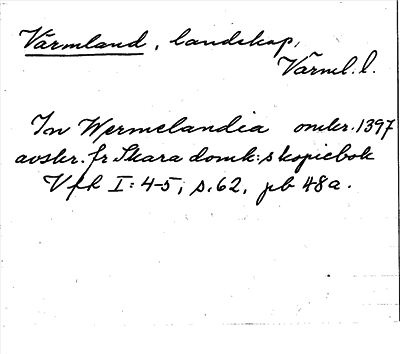 Värmland, landskap,
Värml. l.
In Wermelandia omkr. 1397
avskr. fr Skara domk:s kopiebok
Vfk I: 4-5, s. 62, pb 48a.